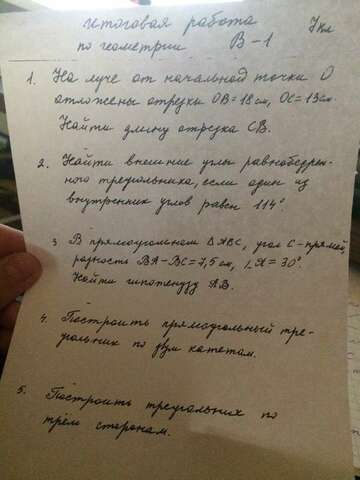 Итоговая работа 7 кл
по геометрии В-1
1. На луче от начальной точки О
отложены отрезки ОВ=18см, ОС=13см.
Найти длину отрезка СВ.
2. Найти внешние углы равнобедрен-
ного треугольника, если один из
внутренних углов равен 114°.
3 В прямоугольном ΔАВС, угол С-прямой,
разность ВА-ВС=7,5 см, ∠А=30°.
Найти гипотенузу АВ.
4. Построить прямоугольный тре-
угольник по двум катетам.
5. Построить треугольник по
трём сторонам.